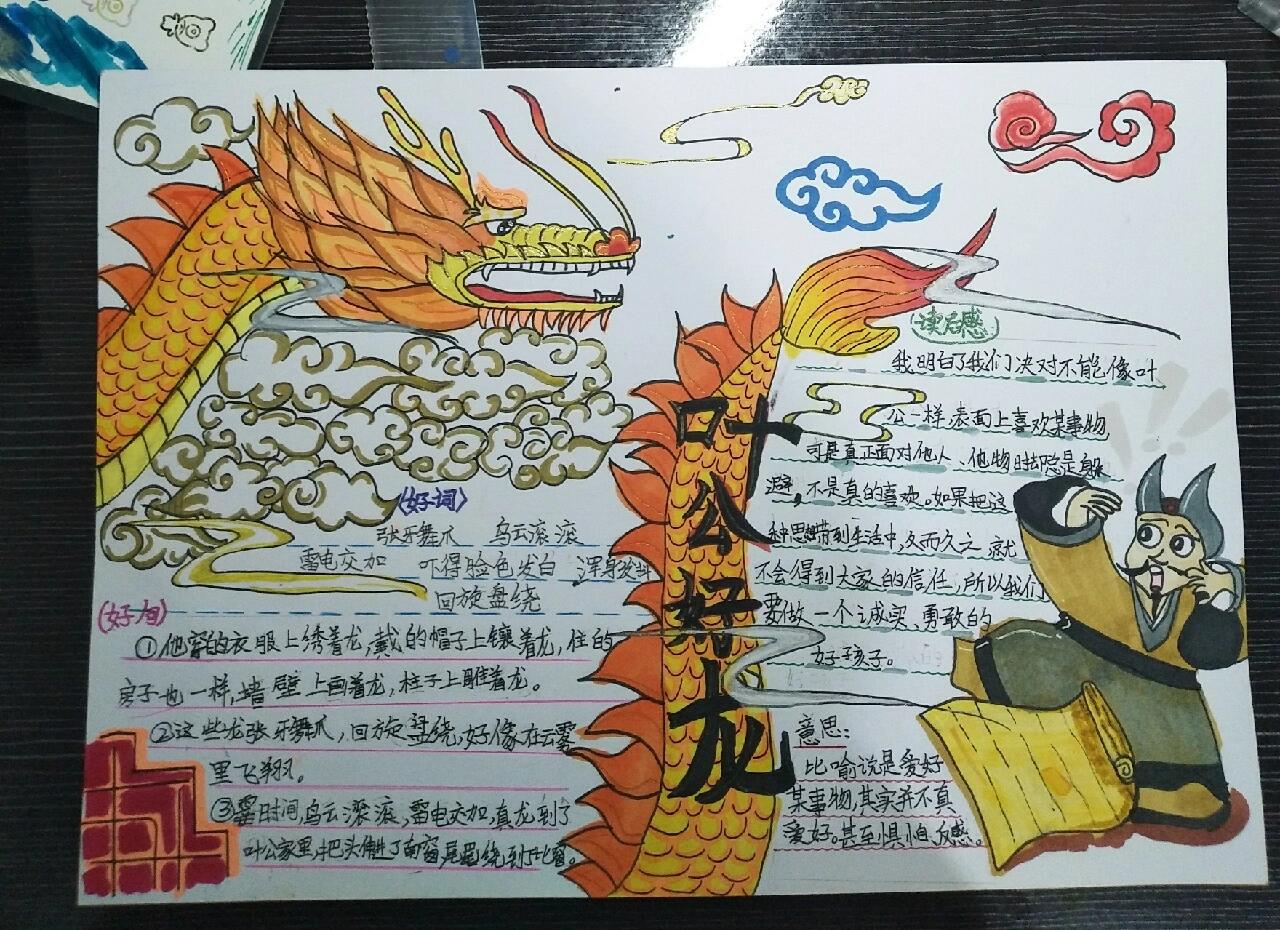 叶公好龙
(好词)
张牙舞爪 乌云滚滚
雷电交加 吓得脸色发白 浑身发抖
回旋盘绕
(好句)
①他穿的衣服上绣着龙,戴的帽子上镶着龙,住的
房子也一样,墙壁上画着龙,柱子上雕着龙。
②这些龙张牙舞爪,回旋盘绕,好像在云雾
里飞翔。
③霎时间,乌云滚滚,雷电交加,真龙到了
叶公家里,把头伸进了南窗,尾巴绕到了北窗。
读后感
我明白了我们决对不能像叶
公一样,表面上喜欢某事物
可是真正面对他人、他物时却总是躲
避,不是真的喜欢。如果把这
种思想带到生活中,久而久之,就
不会得到大家的信任,所以我们
要做一个诚实、勇敢的
好孩子。
意思:
比喻说是爱好
某事物,其实并不真
爱好。甚至惧怕、反感。